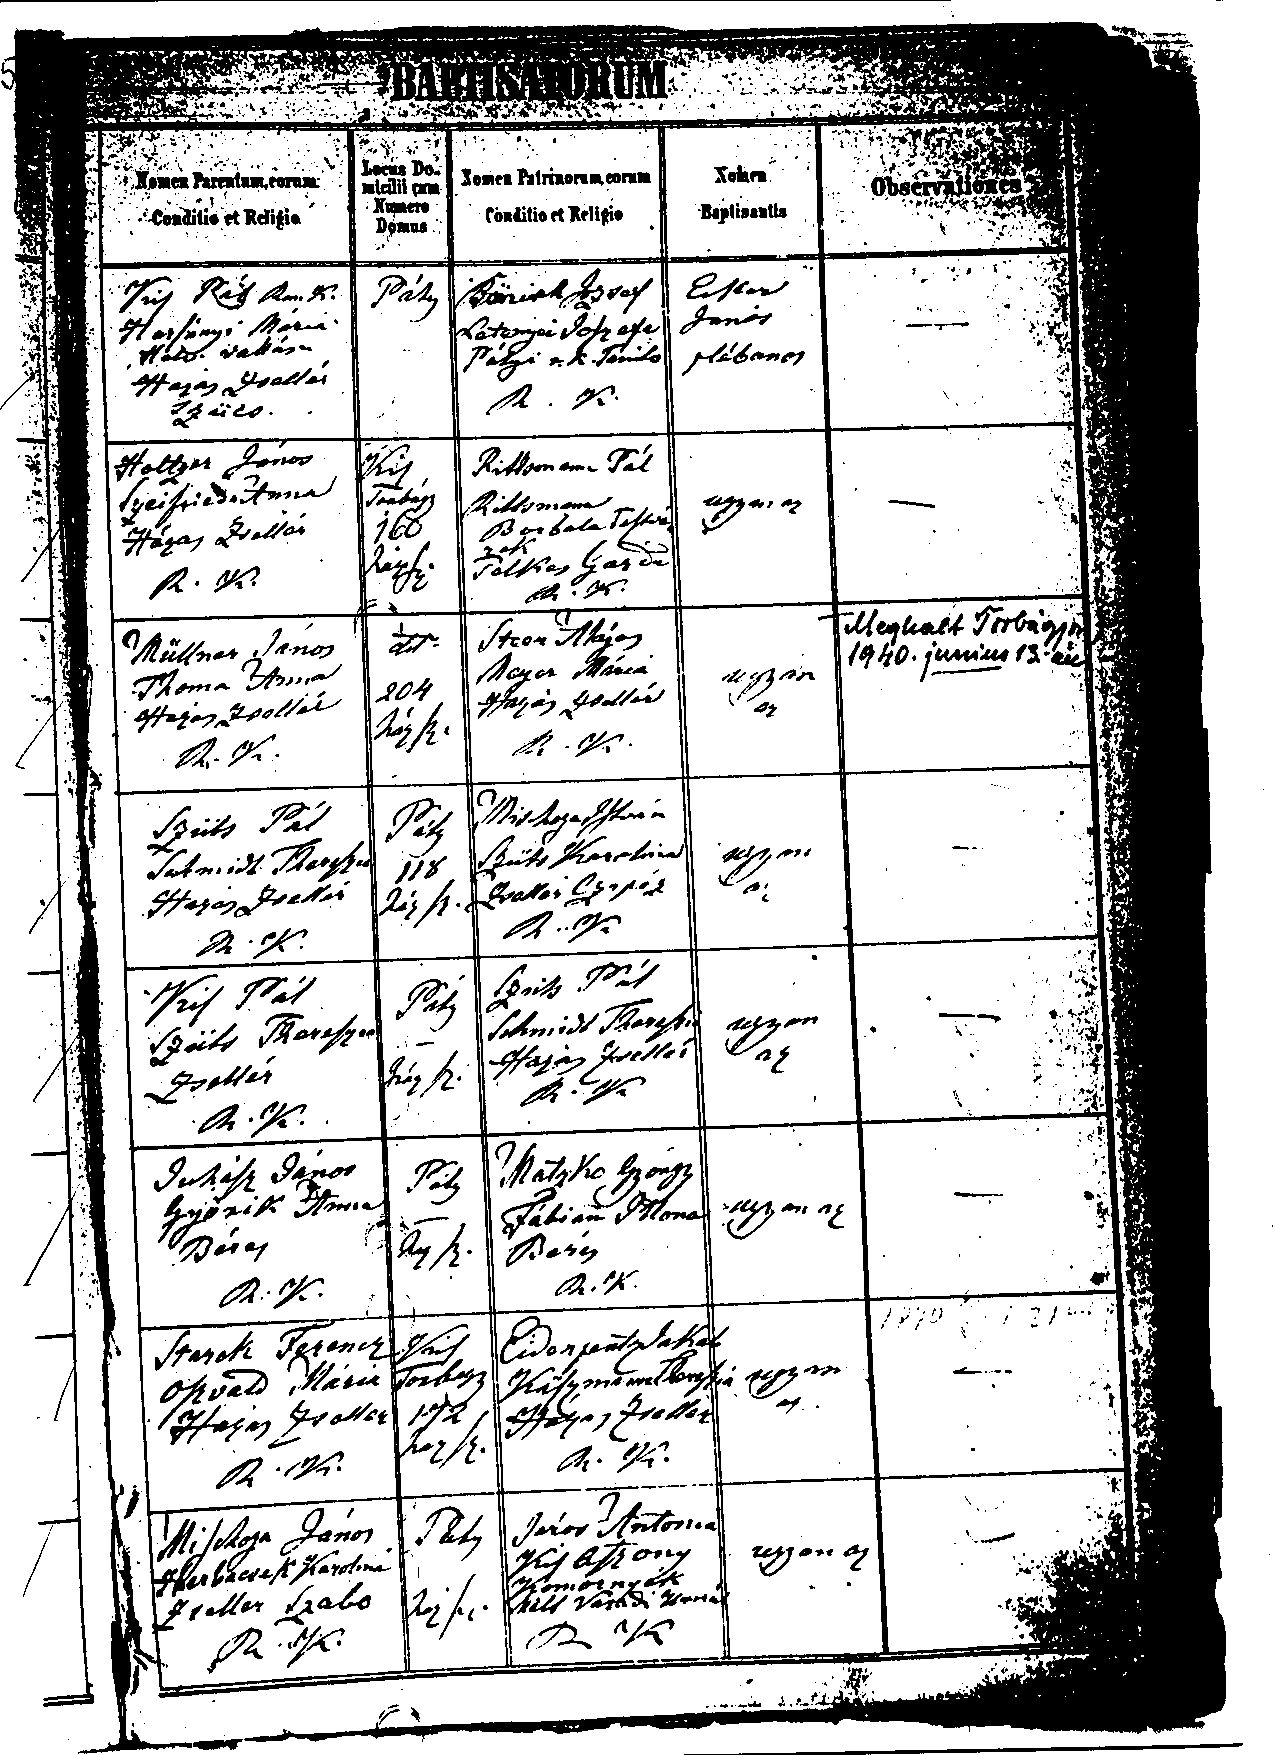 5
BAPTISATORUM
Nomen Parentum, eorum
Conditio et Religio
Locus Do-
micilii cum
Numero
Domus
Nomen Patrinorum, eorum
Conditio et Religio
Nomen
Baptisantis
Observationes
Kis Pál Rom. K.
Harsányi Mária
Helv. vallású
Hazas Zsellér
Szücs.
Páty
József
Pátyi r. k. Tanító
R. K.
Ester
János
plébanos
—
Holtzer János
Szeifried Anna
Házas Zsellér
R. K.
Kis
Torbágy
168
ház sz.
Rittsmann Pál
Rittsmann
Borbala Testvé
rek
Telkes Gazda
R. K.
ugyan az
—
Müllner János
Thoma Anna
Hazas Zsellér
R. K.
dto
204
ház sz.
Mayer Mária
Hazas Zsellér
R. K.
ugyan
az
Meghalt Torbágyon
1940. junius 13.-án
Szüts Pál
Schmidt Therezia
Hazas Zsellér
R. K.
Páty
118
ház sz.
István
Szüts Karolina
Zsellér
R. K.
ugyan
az
—
Kis Pál
Szüts Therezia
Zsellér
R. K.
Páty
—
ház sz.
Szüts Pál
Schmidt Therezia
Hazas Zsellér
R. K.
ugyan
az
—
Juhász János
Györik Anna
Béres
R. K.
Páty
—
ház sz.
Matzko György
Fábian Ilona
Beres
R. K.
ugyan az
—
Starck Ferencz
Oszvald Mária
Hazas Zsellér
R. K.
Kis
Torbagy
172
haz sz.
Jakab
Hazas Zsellér
R. K.
ugyan
az
—
János
Karolina
Zseller Szabo
R. K.
Páty
ház sz.
Antonia
R. K.
ugyan az
—